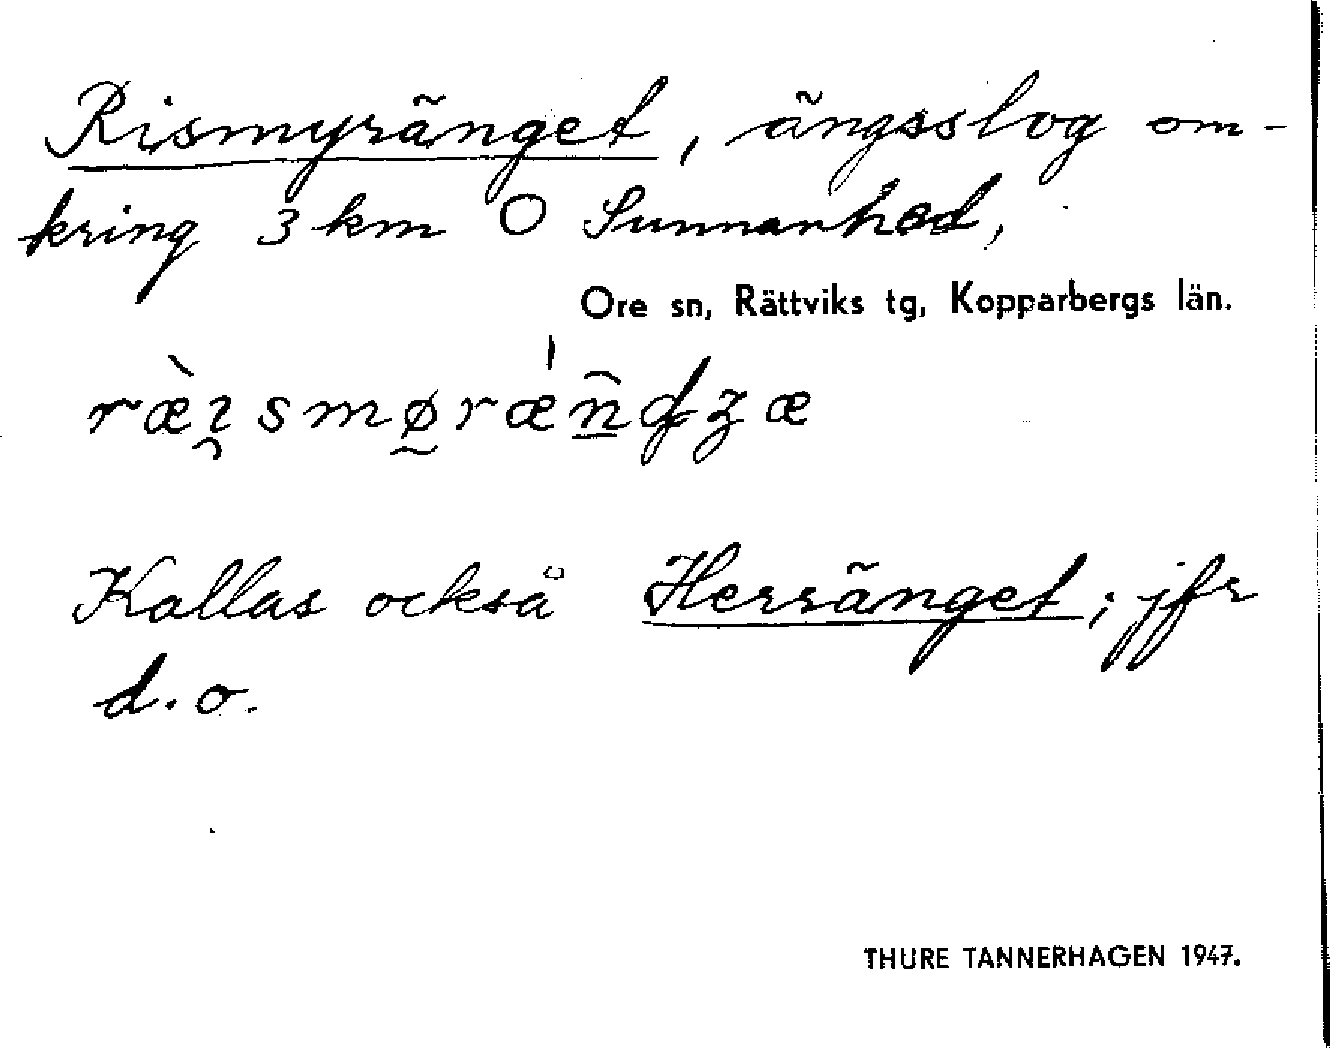 Rismyränget, ängsslog om-
kring 3 km O Sunnanhed,
Ore sn, Rättviks tg, Kopparbergs län.
ræ̀ı̯smø̰rǽn̲̑dʒæ
Kallas också Herränget; jfr
d.o.
THURE TANNERHAGEN 1947.